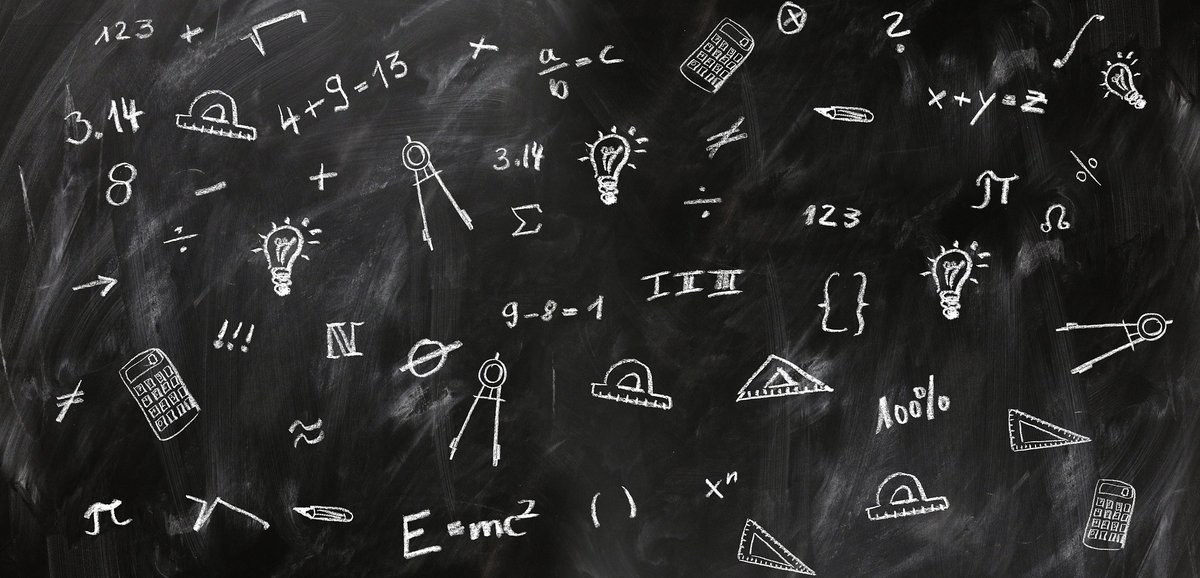 123 + √
4+9=13
×
a/b = c
⊗
?
∫
3.14
x+y=z
8
−
+
3.14
≠
÷
%
π
÷
Σ
123
Ω
→
I II III
{ }
!!!
ℕ
9-8=1
∅
≠
100%
≈
π
√
E=mc²
( )
xⁿ